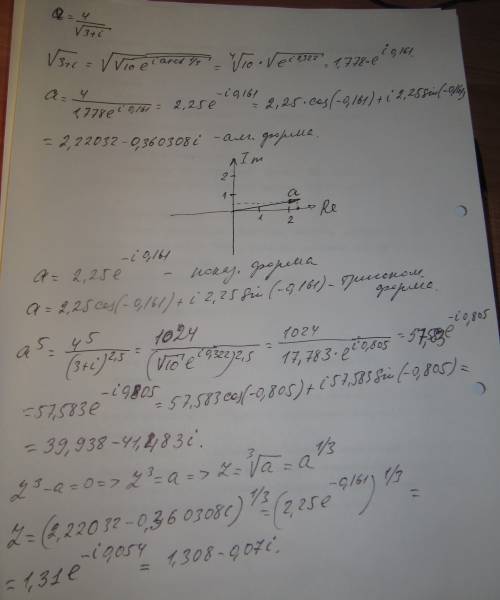 a = 4/√(3+i)
√(3+i) = √(√10 e^(i arctg 1/3)) = ⁴√10 · √(e^(i 0,322)) = 1,778 · e^(i 0,161)
a = 4/(1,778 e^(i 0,161)) = 2,25 e^(-i 0,161) = 2,25 · cos(-0,161) + i 2,25 sin(-0,161)
= 2,22032 - 0,360308 i - алг. форма.
Im
2
1
a
1 2 Re
a = 2,25 e^(-i 0,161) - показ. форма
a = 2,25 cos(-0,161) + i 2,25 sin(-0,161) - тригоном. форма.
a^5 = 4^5/(3+i)^2,5 = 1024/(√10 e^(i 0,322))^2,5 = 1024/(17,783 · e^(i 0,805)) = 57,583 e^(-i 0,805)
= 57,583 e^(-i 0,805) = 57,583 cos(-0,805) + i 57,583 sin(-0,805) =
= 39,938 - 41,483 i.
z^3 - a = 0 => z^3 = a => z = ³√a = a^(1/3)
z = (2,22032 - 0,360308 i)^(1/3) = (2,25 e^(-0,161))^(1/3) =
= 1,31 e^(-i 0,054) = 1,308 - 0,07 i.